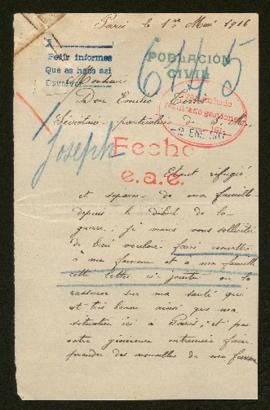 Paris le 1er Mai 1916
Pedir informes
Que es hase asi
6445
POBLACIÓN
CIVIL
Monsieur
Don Emilio
Secrétaire particulier de S. M.
2 ENE. 1917
Joseph
Fecho
e.a.c.
Etant refugié
et séparé de ma famille
depuis le début de la
guerre, je viens vous solliciter
de bien vouloir faire connaître
à ma femme et à ma famille
cette lettre ci-jointe ou la
rassurer sur ma santé qui
est très bonne ainsi que ma
situation ici à Paris; et par
votre généreuse entremise faire
prendre des nouvelles de ma femme